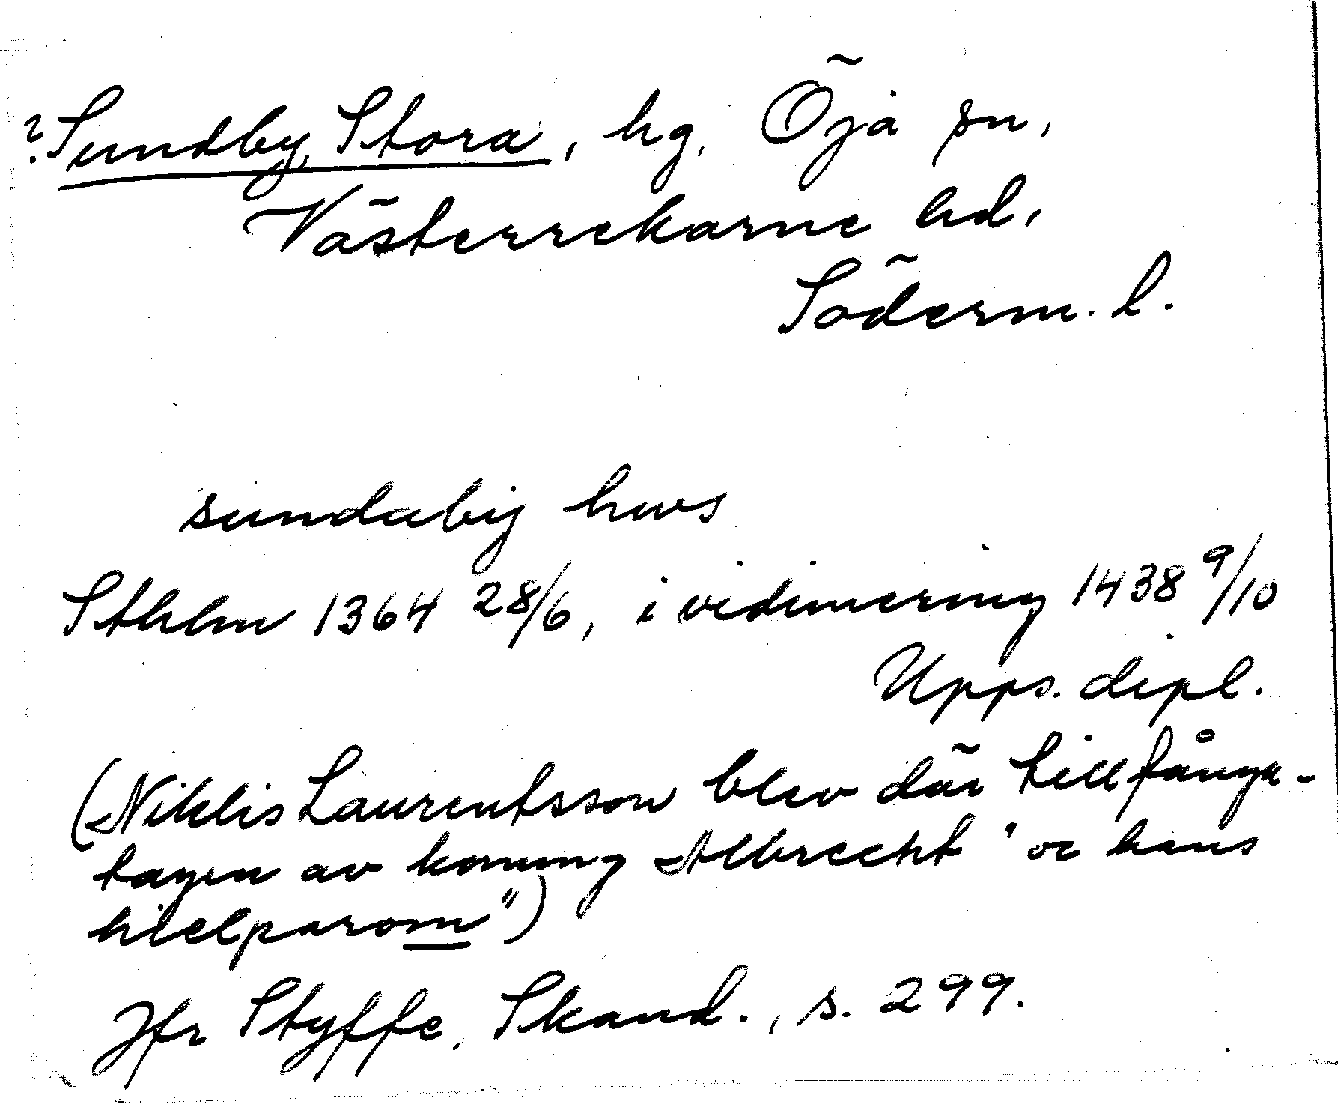 ? Sundby, Stora, hg, Öja sn,
Västerrekarne hd,
Söderm. l.
sundaby hws
Sthlm 1364 28/6, i vidimering 1438 9/10
Upps. dipl.
(Niklis Laurentsson blev där tillfånga-
tagen av konung Albrecht "oc hans
hielparom")
Jfr Styffe, Skand., s. 299.